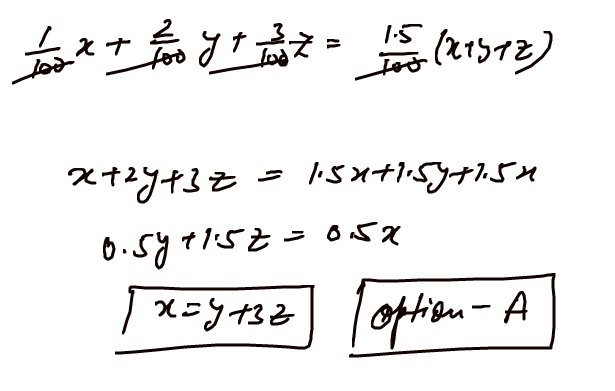 1/100 x + 2/100 y + 3/100 z = 1.5/100 (x+y+z)
x+2y+3z = 1.5x+1.5y+1.5x
0.5y+1.5z = 0.5x
x=y+3z option- A